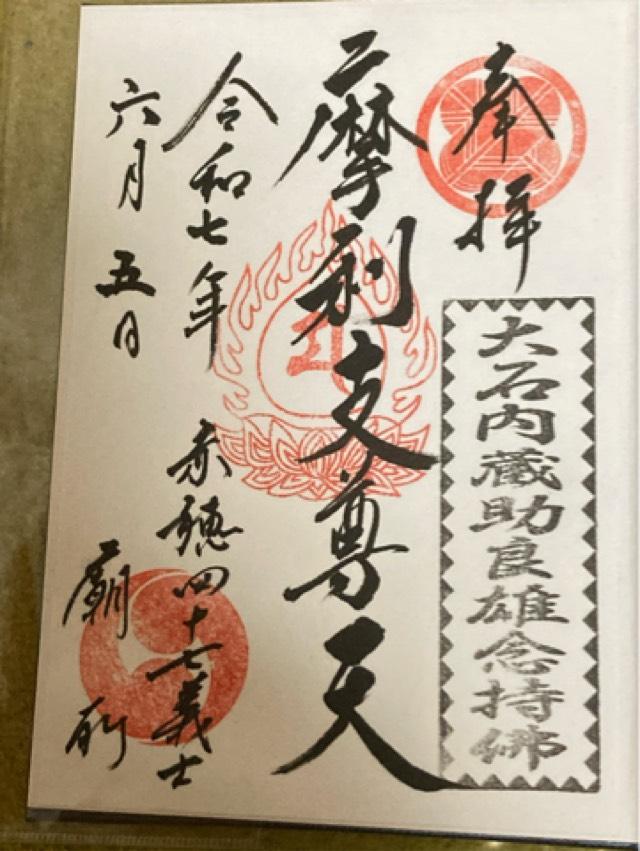 奉拝
大石内蔵助良雄念持佛
摩利支尊天
令和七年
六月五日
赤穂四十七義士
廟所